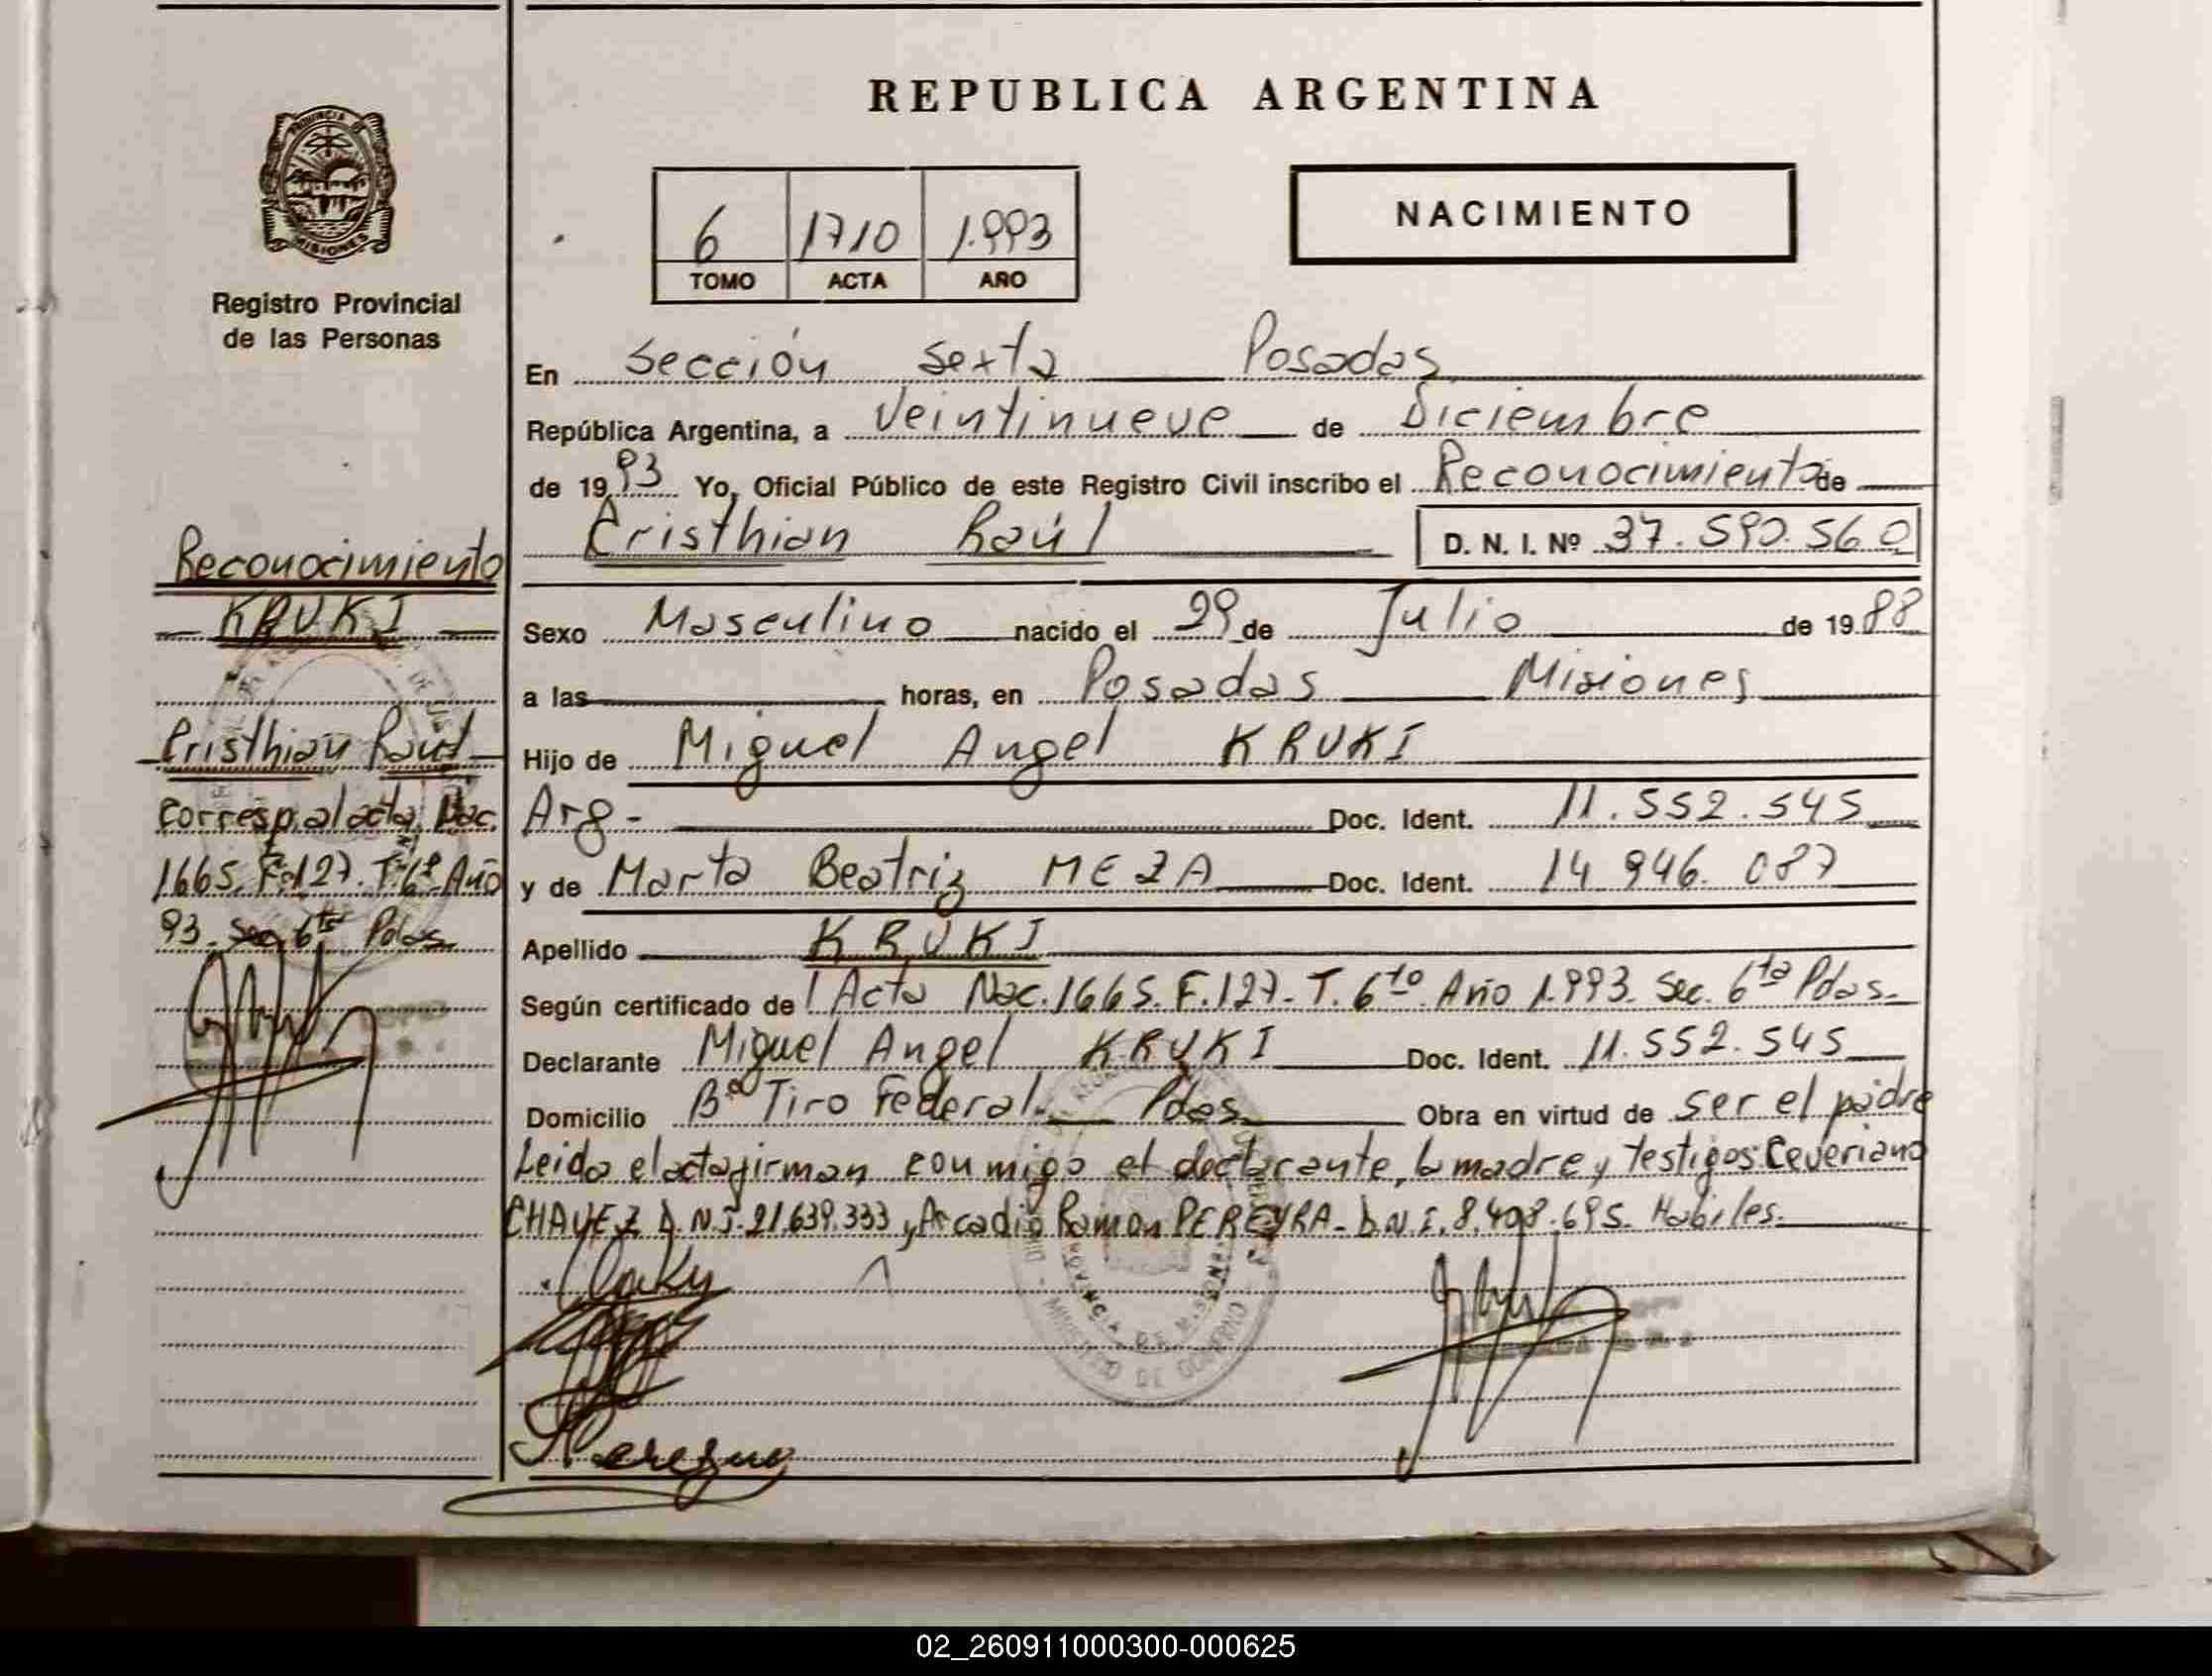 REPUBLICA ARGENTINA
PROVINCIA DE
MISIONES
Registro Provincial
de las Personas
6 1710 1.993
TOMO ACTA AÑO
NACIMIENTO
En Sección Sexta Posadas
República Argentina, a Veintinueve de Diciembre
de 1993 Yo, Oficial Público de este Registro Civil inscribo el Reconocimiento de
Cristhian Raúl D. N. I. Nº 37.590.560
Sexo Masculino nacido el 29 de Julio de 1988
a las horas, en Posadas Misiones
Hijo de Miguel Angel KRUKI
Arg- Doc. Ident. 11.552.545
y de Marta Beatriz MEZA Doc. Ident. 14 946. 087
Apellido KRUKI
Según certificado de Acta Nac. 1665. F. 127- T. 6to Año 1.993. Sec. 6ta Pdas-
Declarante Miguel Angel KRUKI Doc. Ident. 11.552.545
Domicilio Bº Tiro Federal- Pdas Obra en virtud de ser el padre
Leida el acta firman conmigo el declarante, la madre y testigos Ceveriano
CHAVEZ D.N.I. 21.639.333 y Arcadio Ramon PEREYRA- D.N.I. 8.408.695. Habiles.
Reconocimiento
KRUKI
Cristhian Raúl
Corresp. al acta Nac.
1665. F. 127. T. 6º Año
93. Sec 6ta Pdas
PROVINCIA DE MISIONES
MINISTERIO DE GOBIERNO
02_260911000300-000625